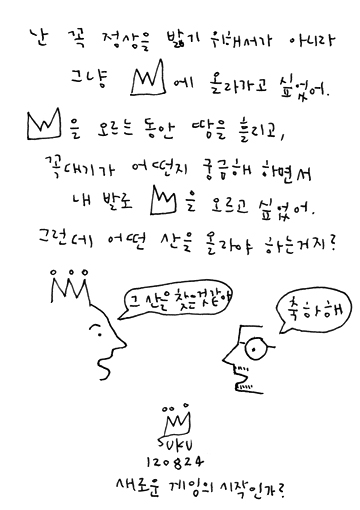 난 꼭 정상을 밟기 위해서가 아니라
그냥 에 올라가고 싶었어.
을 오르는 동안 땀을 흘리고,
꼭대기가 어떤지 궁금해 하면서
내 발로 을 오르고 싶었어.
그런데 어떤 산을 올라야 하는거지?
그 산을 찾은것같아
축하해
SUKU
120824
새로운 게임의 시작인가?